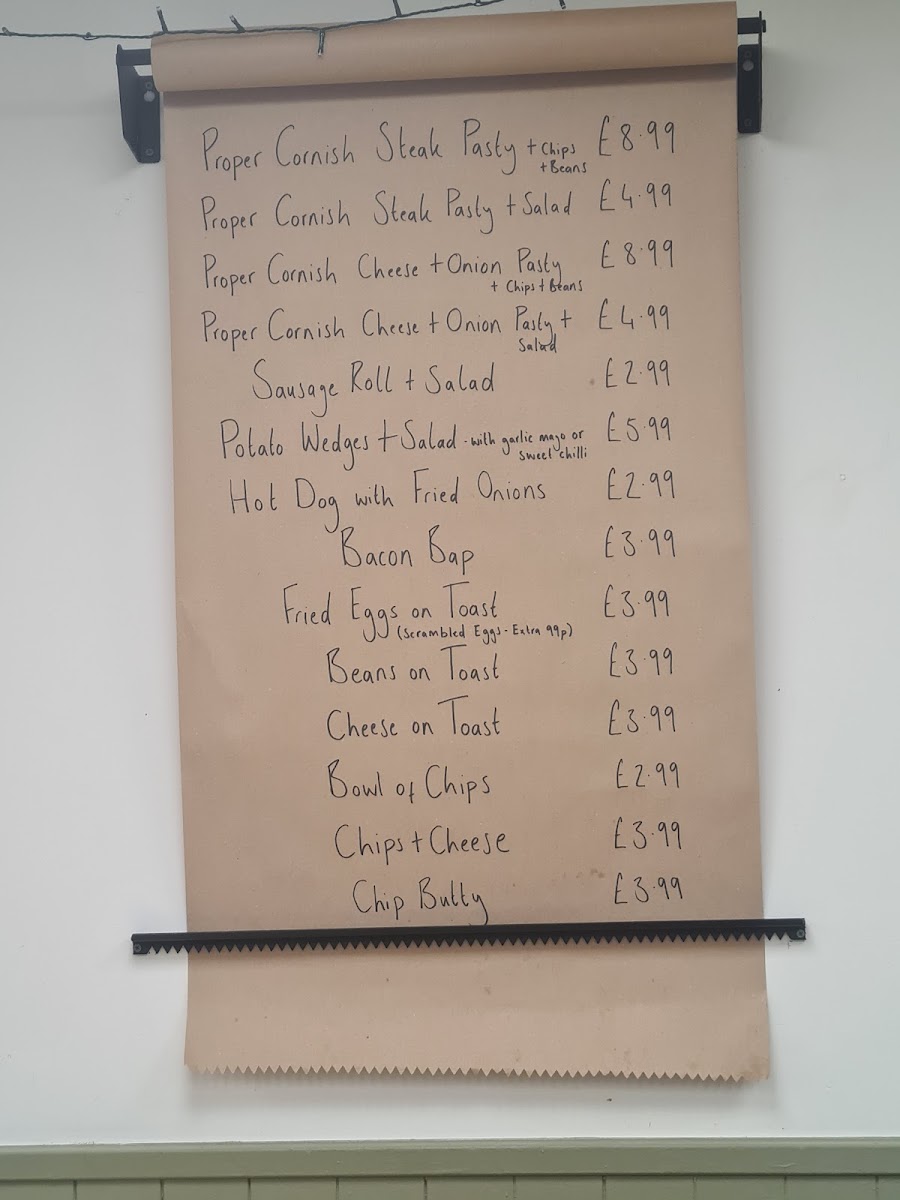 Proper Cornish Steak Pasty + Chips £8.99
+ Beans
Proper Cornish Steak Pasty + Salad £4.99
Proper Cornish Cheese + Onion Pasty £8.99
+ Chips + Beans
Proper Cornish Cheese + Onion Pasty + £4.99
Salad
Sausage Roll + Salad £2.99
Potato Wedges + Salad - with garlic mayo or £5.99
sweet chilli
Hot Dog with Fried Onions £2.99
Bacon Bap £3.99
Fried Eggs on Toast £3.99
(Scrambled Eggs - Extra 99p)
Beans on Toast £3.99
Cheese on Toast £3.99
Bowl of Chips £2.99
Chips + Cheese £3.99
Chip Butty £3.99